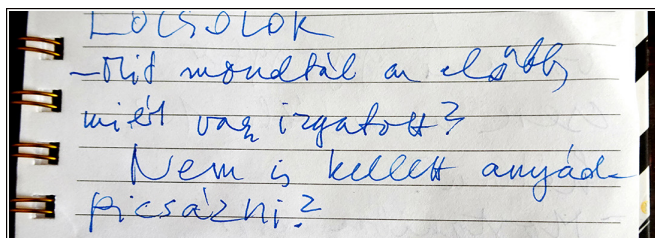 LOCSOLOK
- Mit mondtál az előbb,
miért vag izgatott?
Nem is kellett anyád-
picsázni?